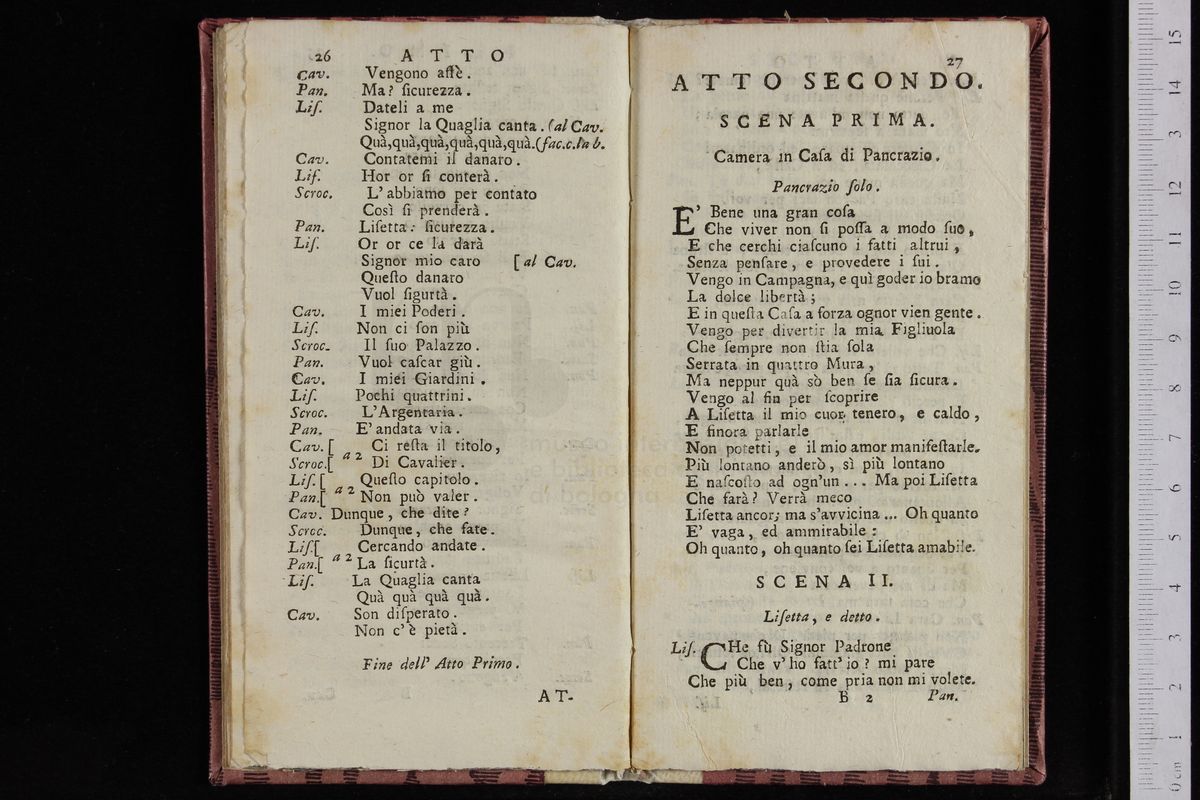 26 ATTO
Cav. Vengono affè.
Pan. Ma? ſicurezza.
Liſ. Dateli a me
Signor la Quaglia canta. (al Cav.
Quà,quà,quà,quà,quà,quà.(fac.c.la b.
Cav. Contatemi il danaro.
Liſ. Hor or ſi conterà.
Scroc. L'abbiamo per contato
Così ſi prenderà.
Pan. Liſetta: ſicurezza.
Liſ. Or or ce la darà
Signor mio caro [al Cav.
Queſto danaro
Vuol ſigurtà.
Cav. I miei Poderi.
Liſ. Non ci ſon più
Scroc. Il ſuo Palazzo.
Pan. Vuol caſcar giù.
Cav. I miei Giardini.
Liſ. Pochi quattrini.
Scroc. L'Argentaria.
Pan. E' andata via.
Cav.[ Ci reſta il titolo,
Scroc.[ a 2 Di Cavalier.
Liſ.[ Queſto capitolo.
Pan.[ a 2 Non può valer.
Cav. Dunque, che dite?
Scroc. Dunque, che fate.
Liſ.[ Cercando andate.
Pan.[ a 2 La ſicurtà.
Liſ. La Quaglia canta
Quà quà quà quà.
Cav. Son diſperato.
Non c'è pietà.
Fine dell' Atto Primo.
AT-
27
ATTO SECONDO.
SCENA PRIMA.
Camera in Caſa di Pancrazio.
Pancrazio ſolo.
E' Bene una gran coſa
Che viver non ſi poſſa a modo ſuo,
E che cerchi ciaſcuno i fatti altrui,
Senza penſare, e provedere i ſui.
Vengo in Campagna, e quì goder io bramo
La dolce libertà;
E in queſta Caſa a forza ognor vien gente.
Vengo per divertir la mia Figliuola
Che ſempre non ſtia ſola
Serrata in quattro Mura,
Ma neppur quà sò ben ſe ſia ſicura.
Vengo al fin per ſcoprire
A Liſetta il mio cuor tenero, e caldo,
E finora parlarle
Non potetti, e il mio amor manifeſtarle.
Più lontano anderò, sì più lontano
E naſcoſto ad ogn'un... Ma poi Liſetta
Che farà? Verrà meco
Liſetta ancor; ma s'avvicina... Oh quanto
E' vaga, ed ammirabile:
Oh quanto, oh quanto ſei Liſetta amabile.
SCENA II.
Liſetta, e detto.
Liſ. CHe fù Signor Padrone
Che v'ho fatt'io? mi pare
Che più ben, come pria non mi volete.
B 2 Pan.